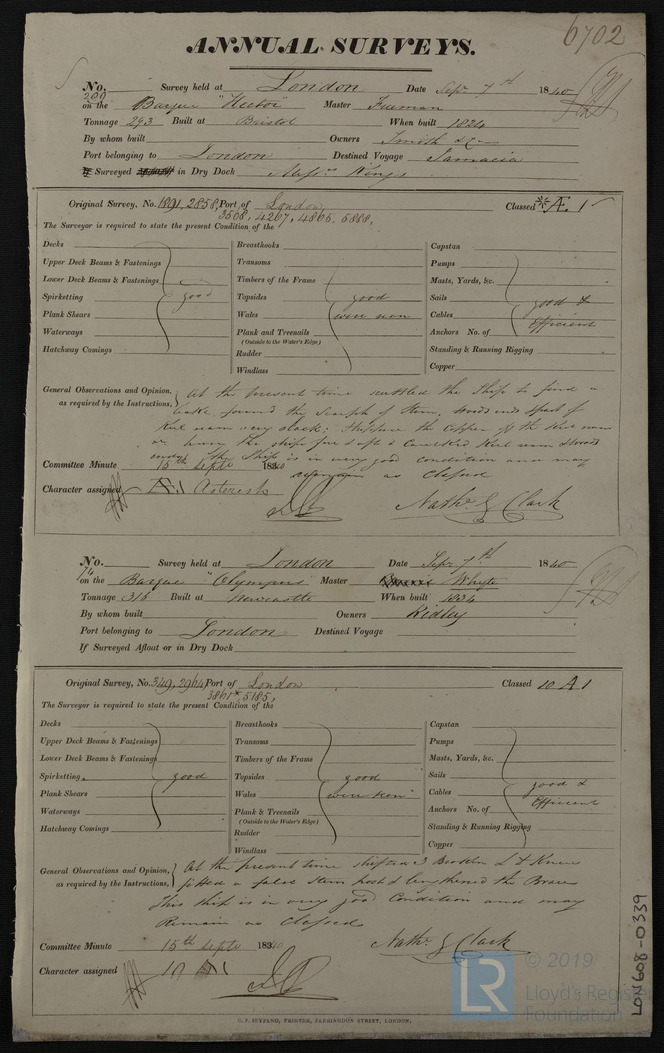 6702
ANNUAL SURVEYS.
No. 200 Survey held at London Date Sepr 7th 1840
on the Barque "Hector" Master Freeman
Tonnage 293 Built at Bristol When built 1824
By whom built Owners Smith &c
Port belonging to London Destined Voyage Jamacia
If Surveyed in Dry Dock Messrs Kings
Original Survey, No. 1891, 2858, Port of London, Classed Æ 1
3508, 4267, 4865, 5888,
The Surveyor is required to state the present Condition of the
Decks Breasthooks Capstan
Upper Deck Beams & Fastenings Transoms Pumps
Lower Deck Beams & Fastenings Timbers of the Frame Masts, Yards, &c.
Spirketting good Topsides good Sails good &
Plank Shears Wales were seen Cables Efficient
Waterways Plank and Treenails Anchors No. of
(Outside to the Water's Edge)
Hatchway Comings Rudder Standing & Running Rigging
Windlass Copper
General Observations and Opinion, At the present time the Ship to find a
as required by the Instructions, leake found the Scarph of Stem, woods ends & part of
Keel seam very slack; the Copper off the Keel seam
the ship fore & aft & Caulked Keel seam & woods
ends. The Ship is in very good condition and may
Committee Minute 15th Septr 1840 as Classed
Character assigned Æ.1 Asterisk Nathl. G Clark
No. 74 Survey held at London Date Sepr 7th 1840
on the Barque "Olympus" Master Whyte
Tonnage 316 Built at Newcastle When built 1834
By whom built Owners Ridley
Port belonging to London Destined Voyage
If Surveyed Afloat or in Dry Dock
Original Survey, No. 349, 2964, Port of London Classed 10 A 1
3861*, 5185,
The Surveyor is required to state the present Condition of the
Decks Breasthooks Capstan
Upper Deck Beams & Fastenings Transoms Pumps
Lower Deck Beams & Fastenings Timbers of the Frame Masts, Yards, &c.
Spirketting good Topsides good Sails good &
Plank Shears Wales were seen Cables Efficient
Waterways Plank & Treenails Anchors No. of
(Outside to the Water's Edge)
Hatchway Comings Rudder Standing & Running Rigging
Windlass Copper
General Observations and Opinion, At the present time shifted 3 Knees
as required by the Instructions, fitted a false Stern post & lengthened the Braces
This ship is in very good Condition and may
Remain as Classed
Committee Minute 15th Septr 1840 Nathl. G Clark
Character assigned 10 A 1
LON608-0339
LR © 2019
Lloyd's Register
Foundation
PRINTER, FARRINGDON STREET, LONDON.